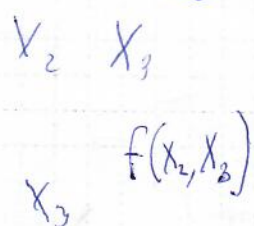 X₂ X₃
f(X₂,X₃)
X₃